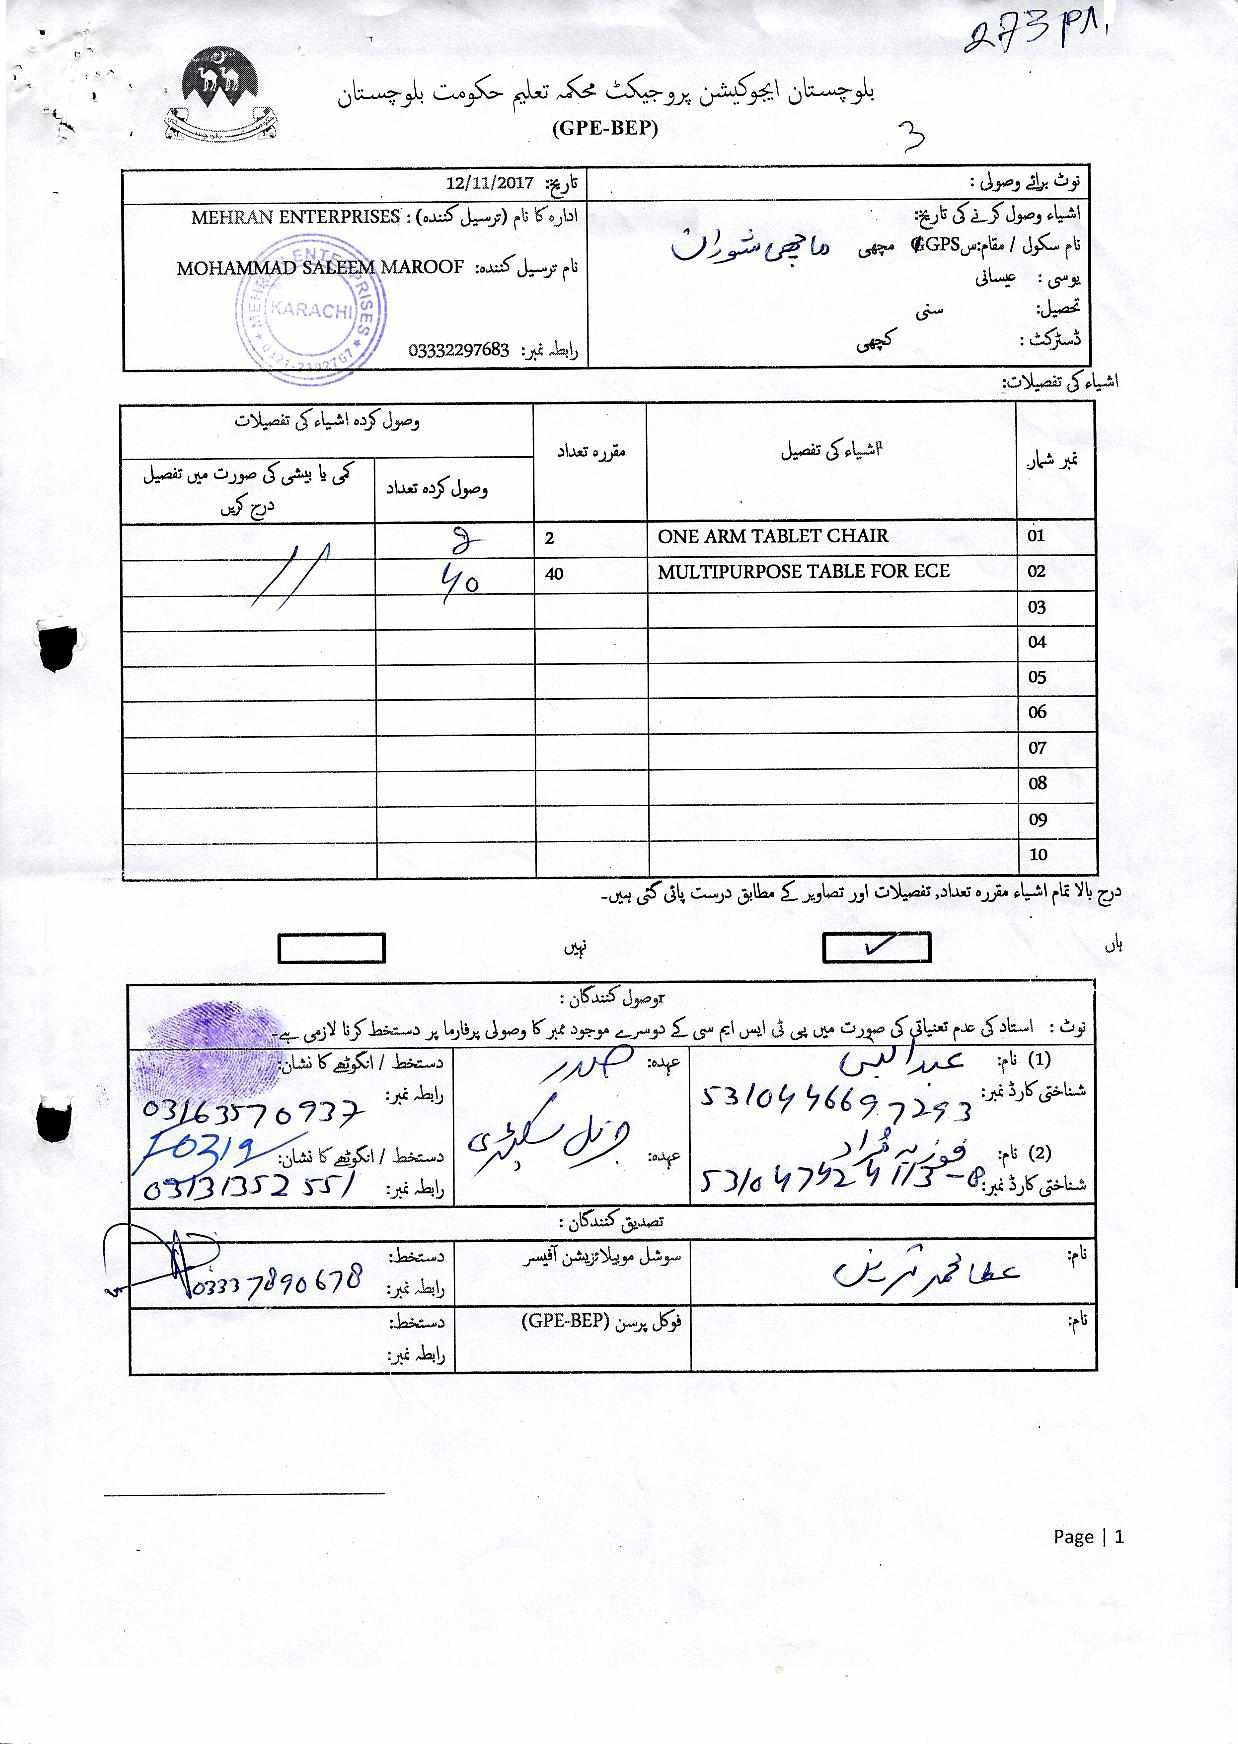 273 PM.
بلوچستان ایجوکیشن پروجیکٹ محکمہ تعلیم حکومت بلوچستان
(GPE-BEP)
3
نوٹ برائے وصولی :
تاریخ: 12/11/2017
اشیاء وصول کرنے کی تاریخ:
ادارہ کا نام (ترسیل کنندہ) : MEHRAN ENTERPRISES
نام سکول / مقام: GPS مچھی ماچھی شوران
نام ترسیل کنندہ: MOHAMMAD SALEEM MAROOF
یوسی : عیسانی
تحصیل: سنی
ڈسٹرکٹ : کچھی
رابطہ نمبر: 03332297683
MEHRAN ENTERPRISES
KARACHI
اشیاء کی تفصیلات:
نمبر شمار اشیاء کی تفصیل مقررہ تعداد وصول کردہ اشیاء کی تفصیلات
وصول کردہ تعداد کمی یا بیشی کی صورت میں تفصیل درج کریں
01 ONE ARM TABLET CHAIR 2 2
02 MULTIPURPOSE TABLE FOR ECE 40 40
03
04
05
06
07
08
09
10
درج بالا تمام اشیاء مقررہ تعداد, تفصیلات اور تصاویر کے مطابق درست پائی گئی ہیں۔
ہاں ✓ نہیں
وصول کنندگان :
نوٹ : استاد کی عدم تعیناتی کی صورت میں پی ٹی ایس ایم سی کے دوسرے موجود ممبر کا وصولی پرفارما پر دستخط کرنا لازمی ہے۔
(1) نام: عبدالنبی عہدہ: صدر دستخط / انگوٹھے کا نشان:
شناختی کارڈ نمبر: 5310446697293 رابطہ نمبر: 03163570937
(2) نام: فوزیہ مراد عہدہ: جنرل سیکٹری دستخط / انگوٹھے کا نشان:
شناختی کارڈ نمبر: رابطہ نمبر: 03131352551
تصدیق کنندگان :
نام: عطا محمد سوشل موبیلائزیشن آفیسر دستخط:
رابطہ نمبر: 03337890678
نام: فوکل پرسن (GPE-BEP) دستخط:
رابطہ نمبر:
Page | 1